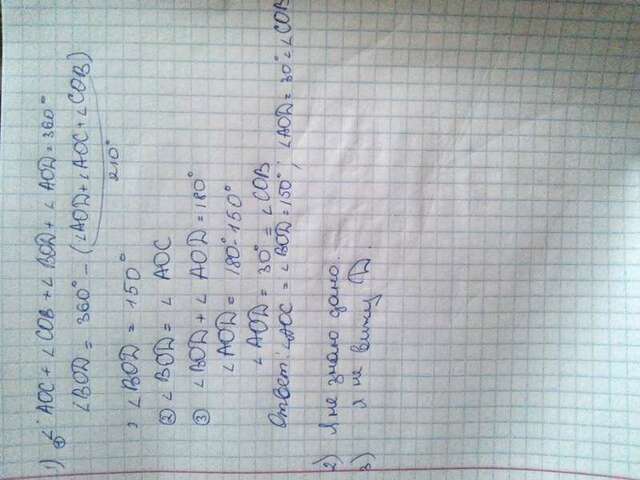 1) ① ∠AOC + ∠COB + ∠BOD + ∠AOD = 360°
∠BOD = 360° - (∠AOD + ∠AOC + ∠COB)
210°
∠BOD = 150°
② ∠BOD = ∠AOC
③ ∠BOD + ∠AOD = 180°
∠AOD = 180° - 150°
∠AOD = 30° = ∠COB
Ответ: ∠AOC = ∠BOD = 150°; ∠AOD = 30° = ∠COB
2) Я не знаю дано.
3) Я не вижу D.